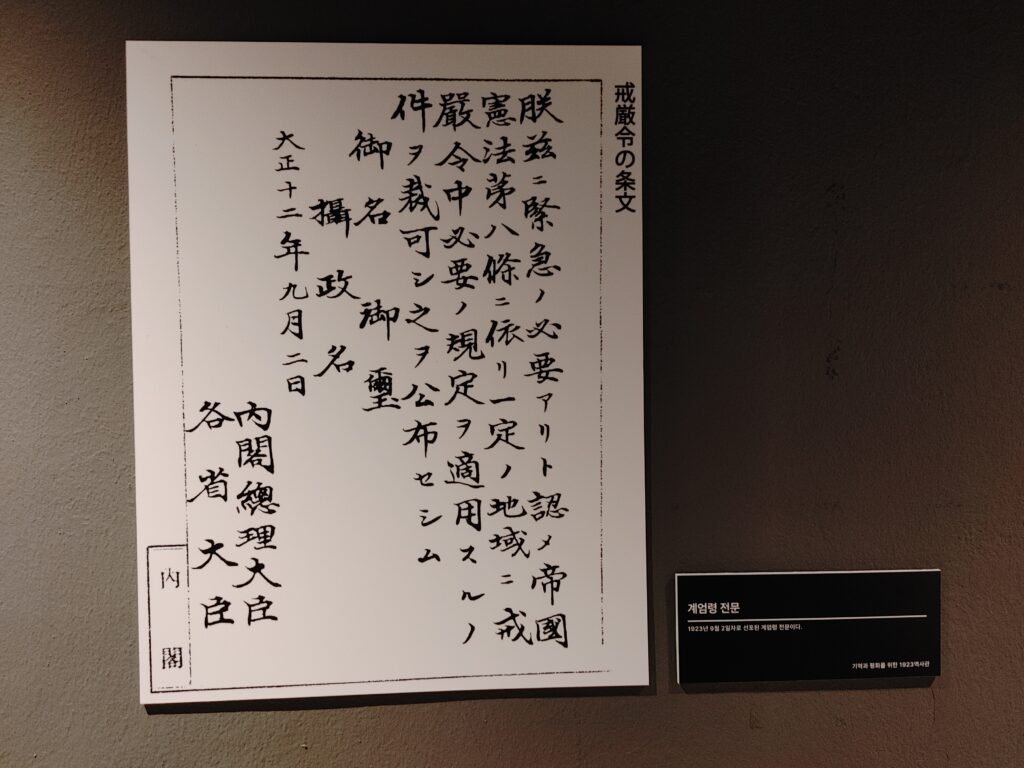 戒厳令の条文
朕茲ニ緊急ノ必要アリト認メ帝國
憲法第八條ニ依リ一定ノ地域ニ戒
嚴令中必要ノ規定ヲ適用スルノ
件ヲ裁可シ之ヲ公布セシム
御名御璽
攝政名
大正十二年九月二日
內閣總理大臣
各省大臣
内閣
계엄령 전문
1923년 9월 2일자로 선포된 계엄령 전문이다.
기억과 평화를 위한 1923역사관